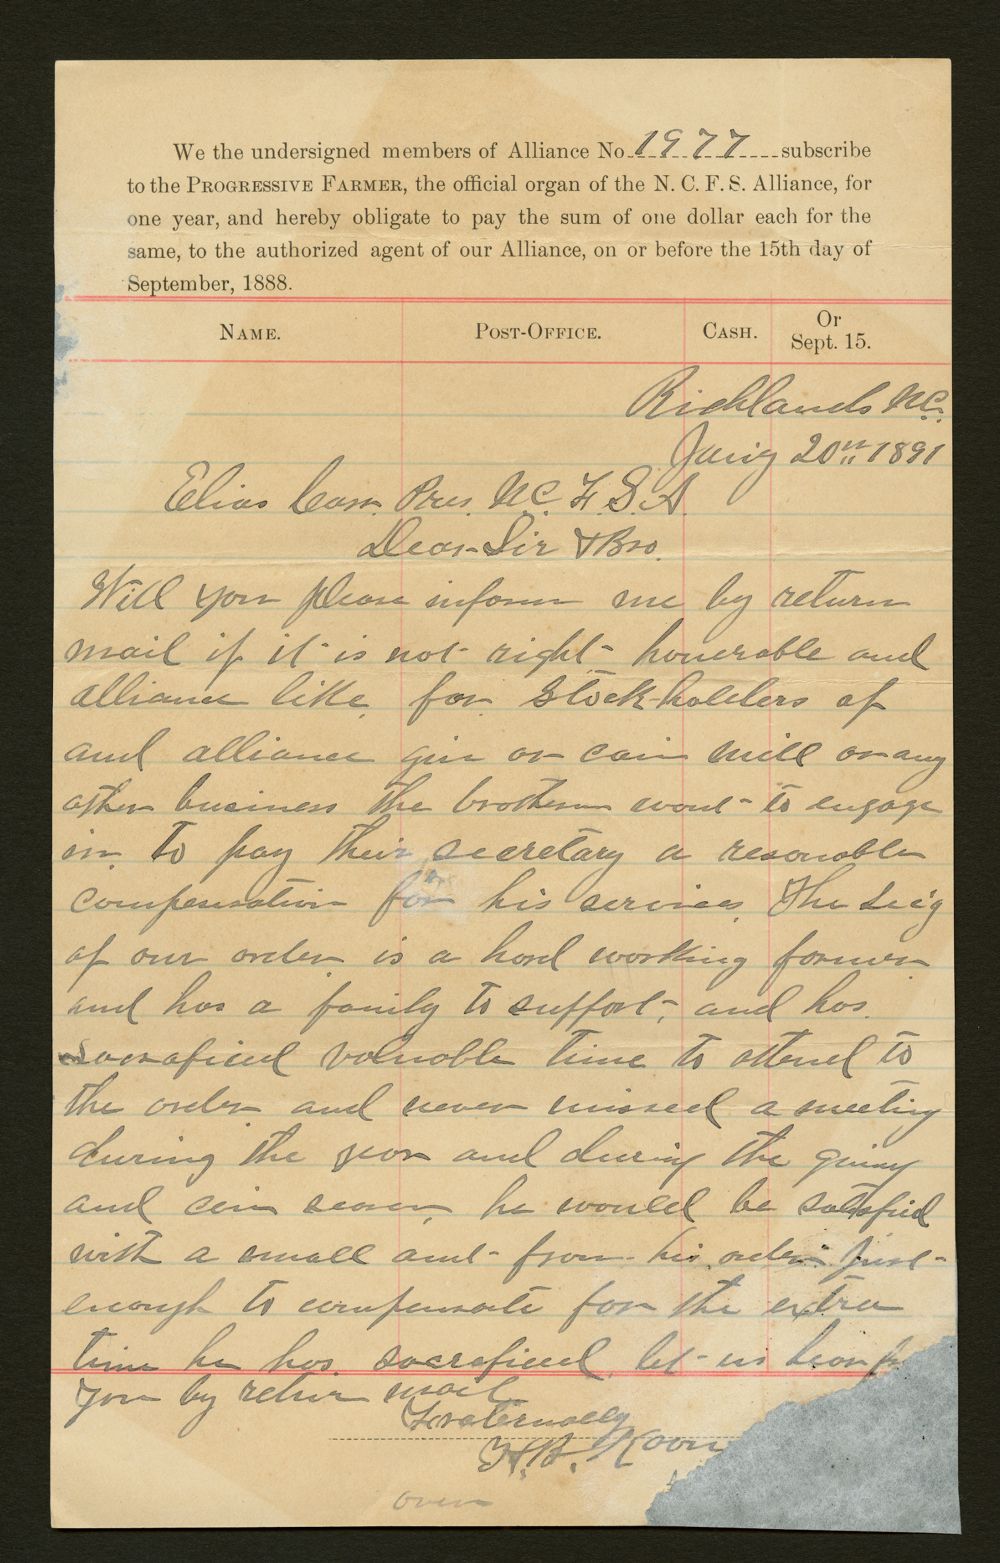 We the undersigned members of Alliance No. 1977 subscribe
to the PROGRESSIVE FARMER, the official organ of the N. C. F. S. Alliance, for
one year, and hereby obligate to pay the sum of one dollar each for the
same, to the authorized agent of our Alliance, on or before the 15th day of
September, 1888.
NAME. POST-OFFICE. CASH. Or Sept. 15.
Richlands N.C.
20th 1891
Elias Carr. Pres. N.C. F. S. A.
Dear Sir & Bro.
Will you please inform me by return
mail if it is not right honerable and
alliance like, for Stock-holders of
and alliance gin or cain mill or any
other business the brotheren want to engage
in. to pay their secretary a resonable
compensation for his services. The Sec'y
of our order is a hard working farmer
and has a family to support, and has
sacraficed valuable time to attend to
the order and never missed a meeting
during the year and during the gining
and cein season, he would be satisfied
with a small amt from his order just
enough to compensate for the extra
time he has sacraficed. let us hear
you by return mail
Fraternally
H.B. Koon
over